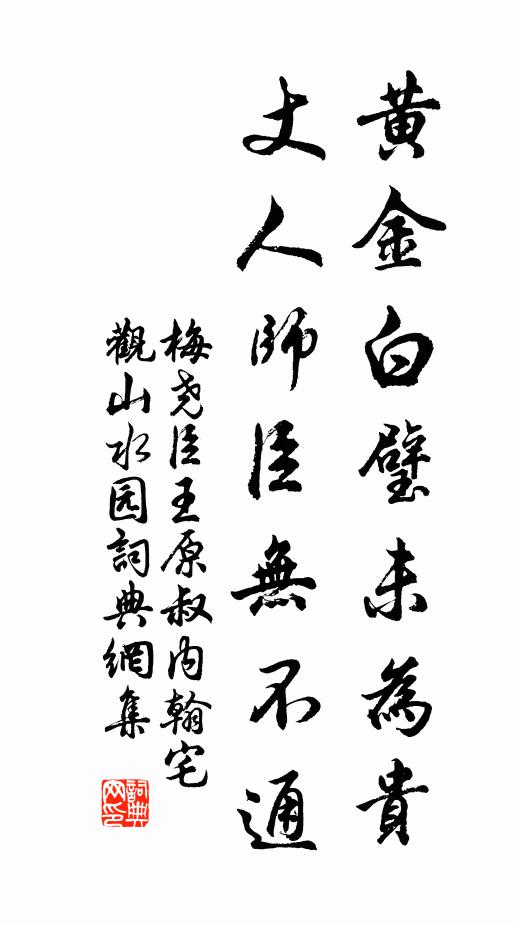 黄金白璧未為貴
丈人師臣無不通
梅尧臣王原叔内翰宅
觀山水园詞典網集
詞典网印